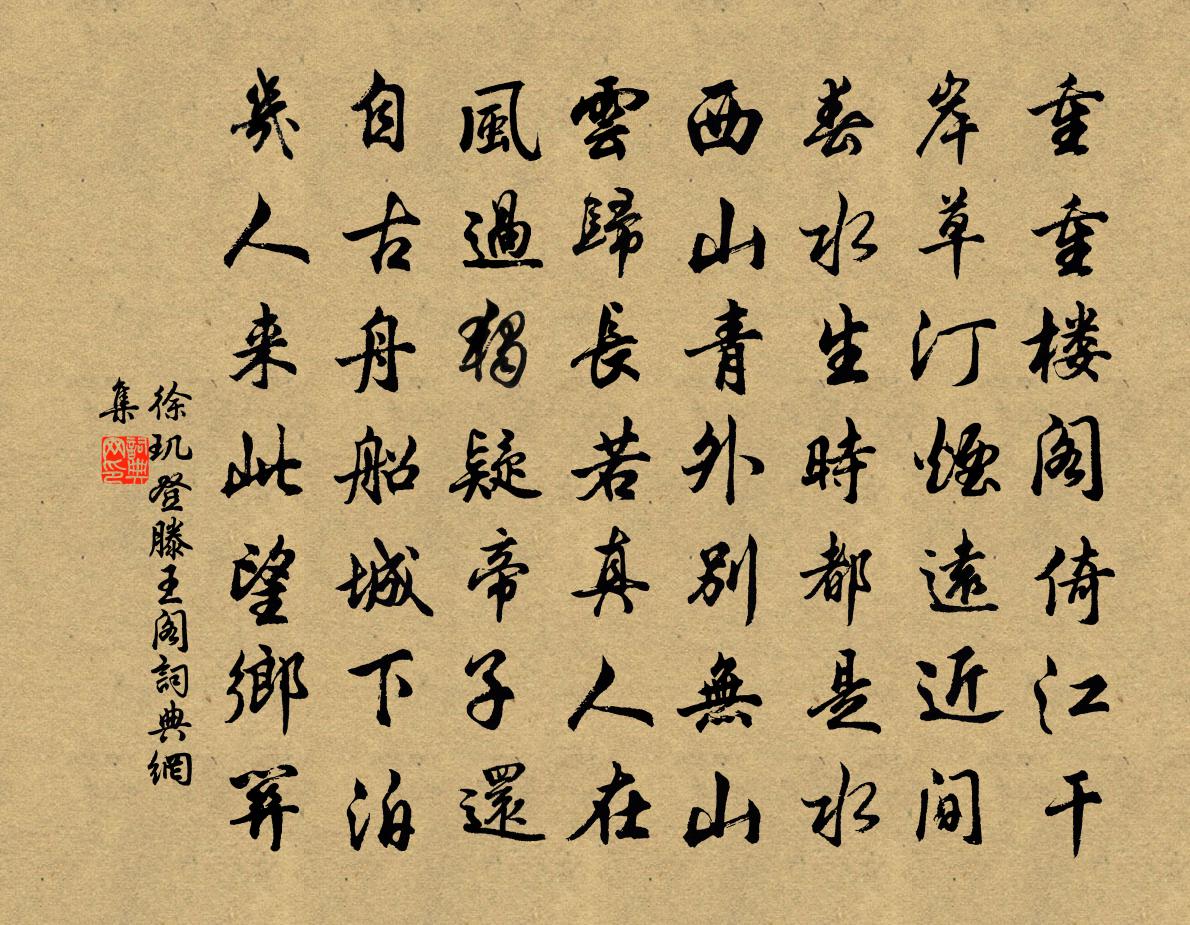 重重楼阁倚江干
岸草汀煙遠近间
春水生時都是水
西山青外别無山
雲歸長若真人在
風過獨疑帝子還
自古舟船城下泊
幾人来此望鄉關
徐玑登滕王阁詞典網
集
詞典网印